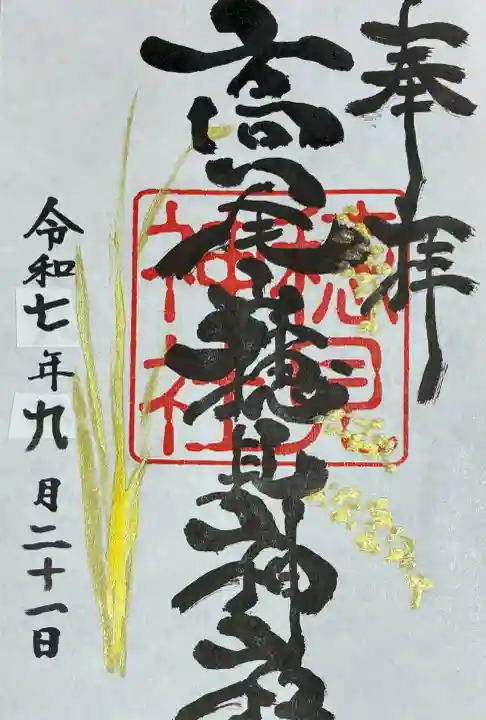 奉拝
高尾山穂見神社
穂見
神社
令和七年九月二十一日